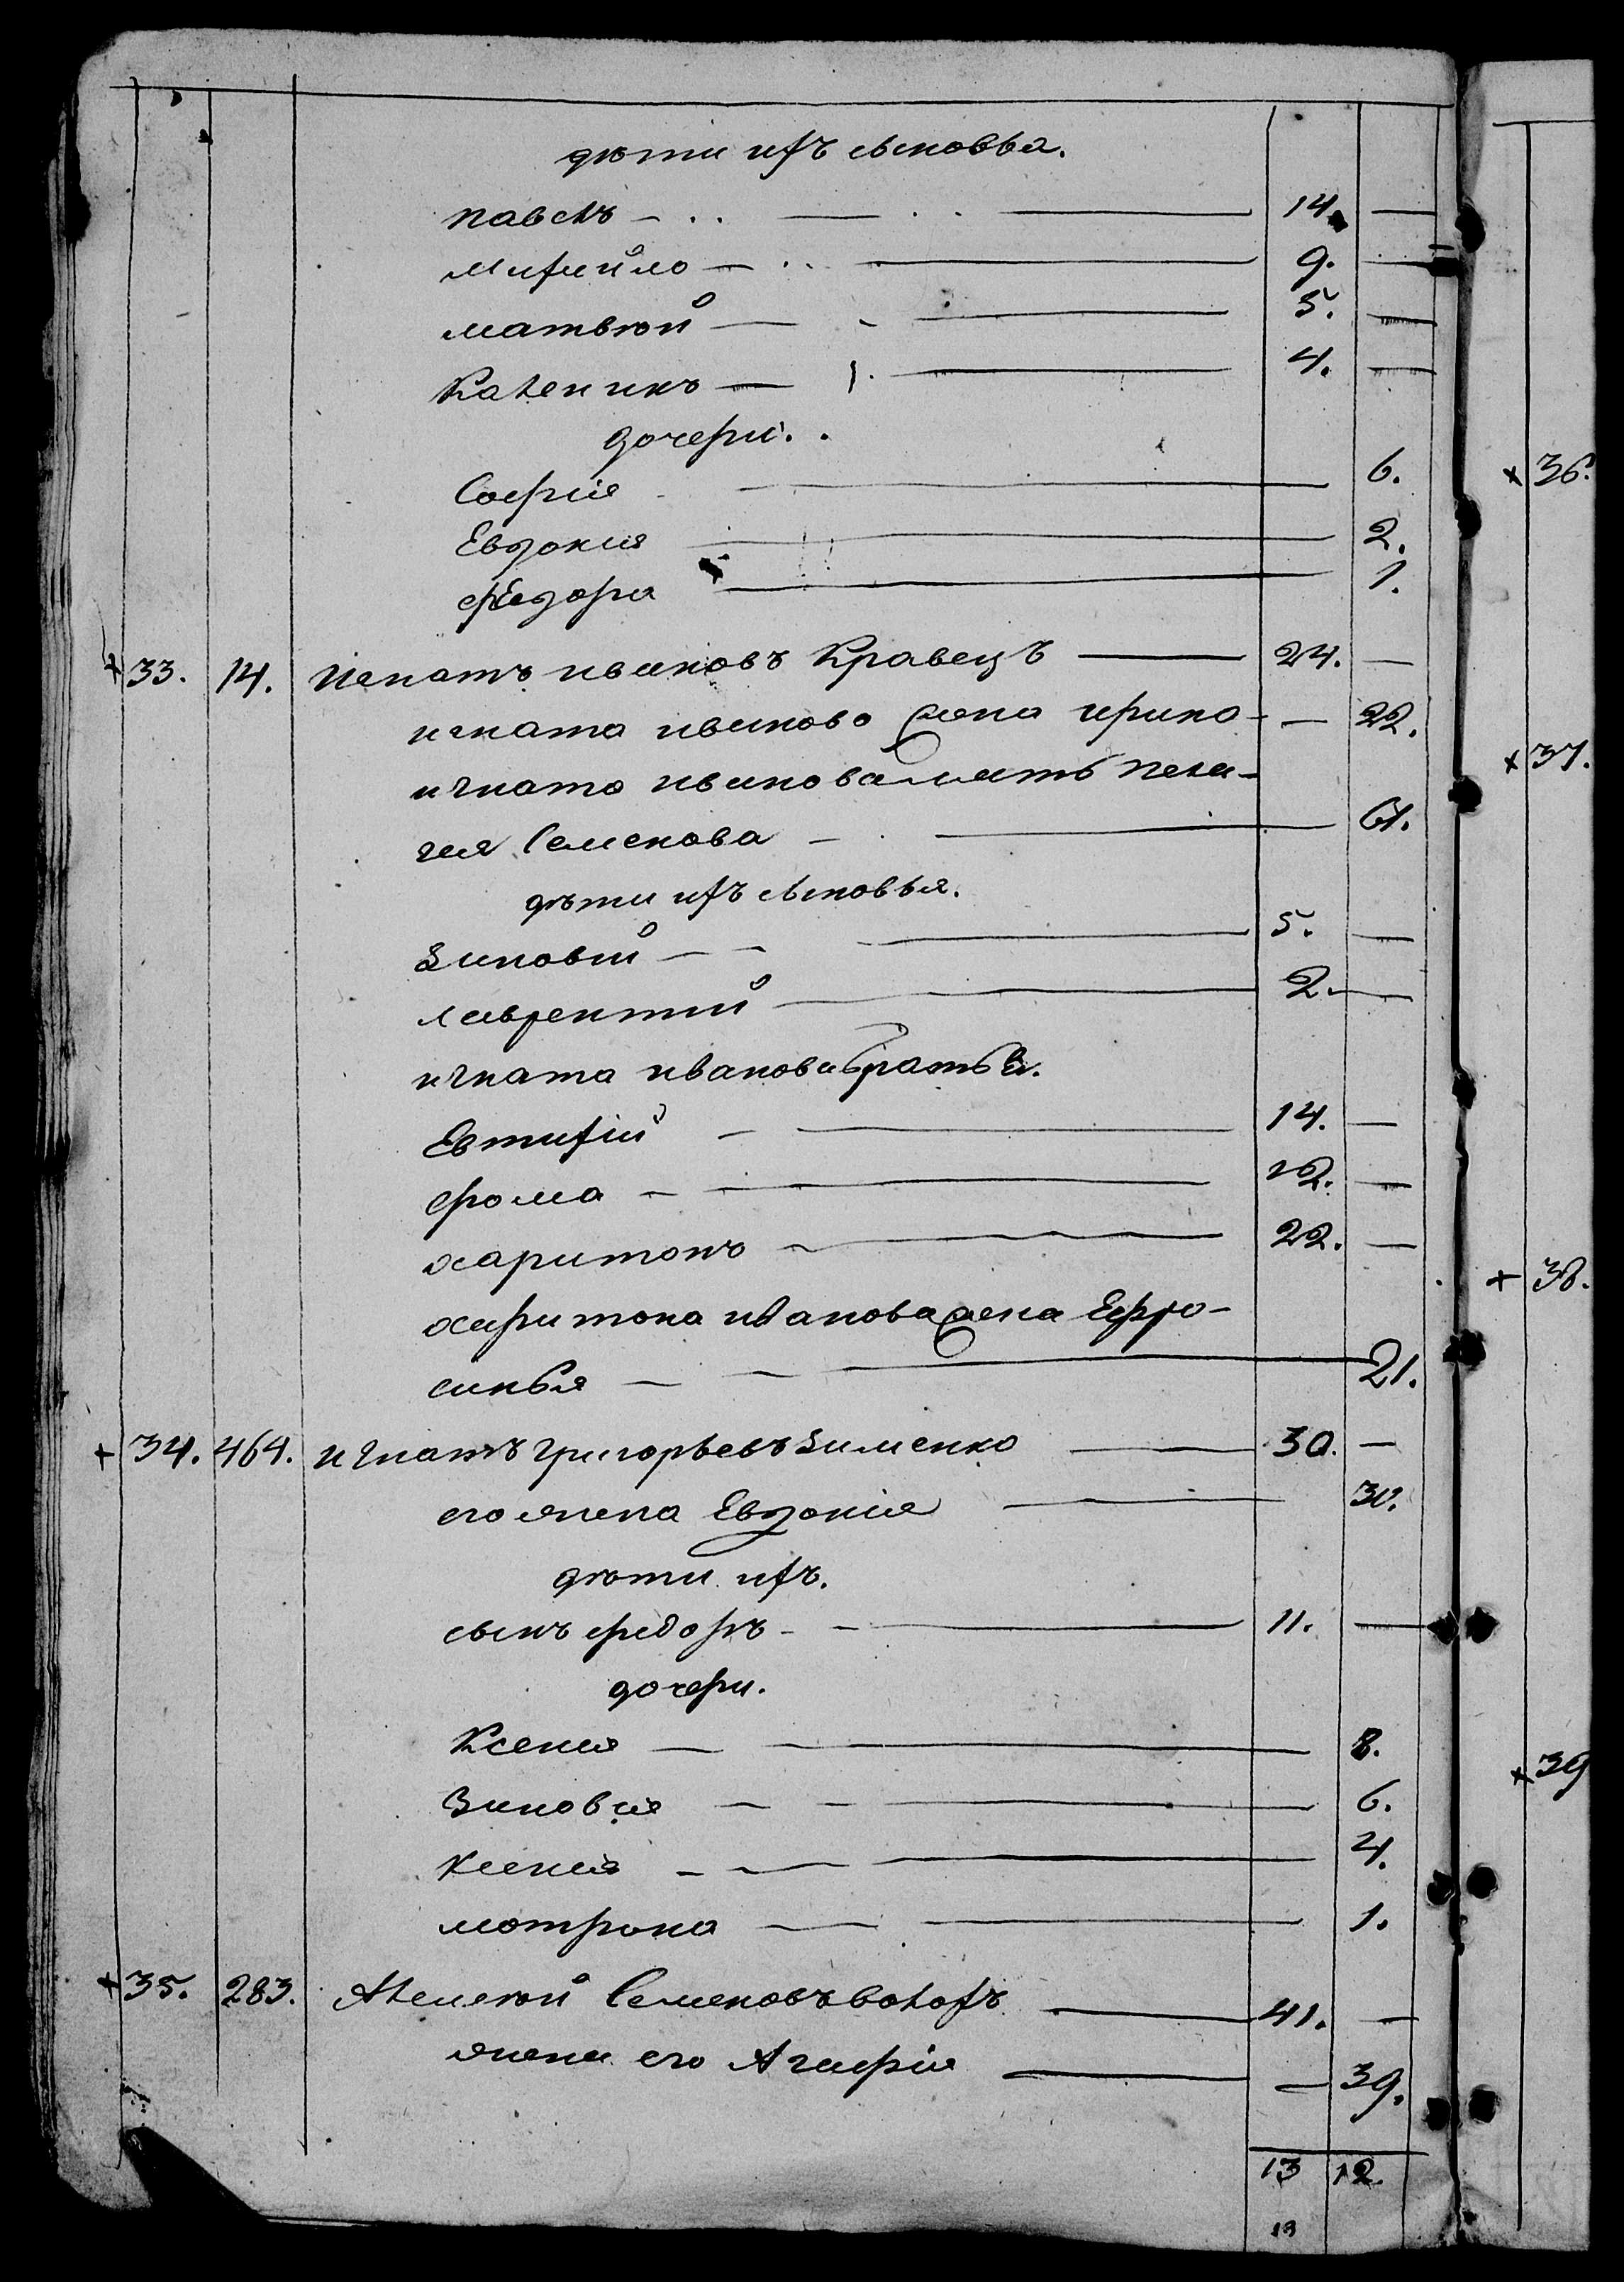 дѣти ихъ сыновья.
Павелъ — 14. —
Михайло — 9. —
Матвѣй — 5. —
Каленикъ — 4. —
дочери.
Софія — 6.
Евдокия — 2.
Федора — 1.
33. 14. Игнатъ Ивановъ Кравецъ — 24. —
Игната Иванова жена Ирина — 22.
Игната Иванова мать Пела-
гия Семенова — 61.
дѣти ихъ сыновья.
Зиновій — 5. —
Лаврентий — 2. —
Игната Иванова братья.
Евтихій — 14. —
Фома — 12. —
Харитонъ — 22. —
Харитона Иванова жена Ефро-
синья — 21.
34. 464. Игнатъ Григорьевъ Зименко — 30. —
его жена Евдокия — 30.
дѣти ихъ.
сынъ Федоръ — 11. —
дочери.
Ксения — 8.
Зиновия — 6.
Ксения — 4.
Мотрона — 1.
35. 283. Алексѣй Семеновъ Волохъ — 41. —
жена его Агафія — 39.
13 12.
13
36.
37.
38.
39